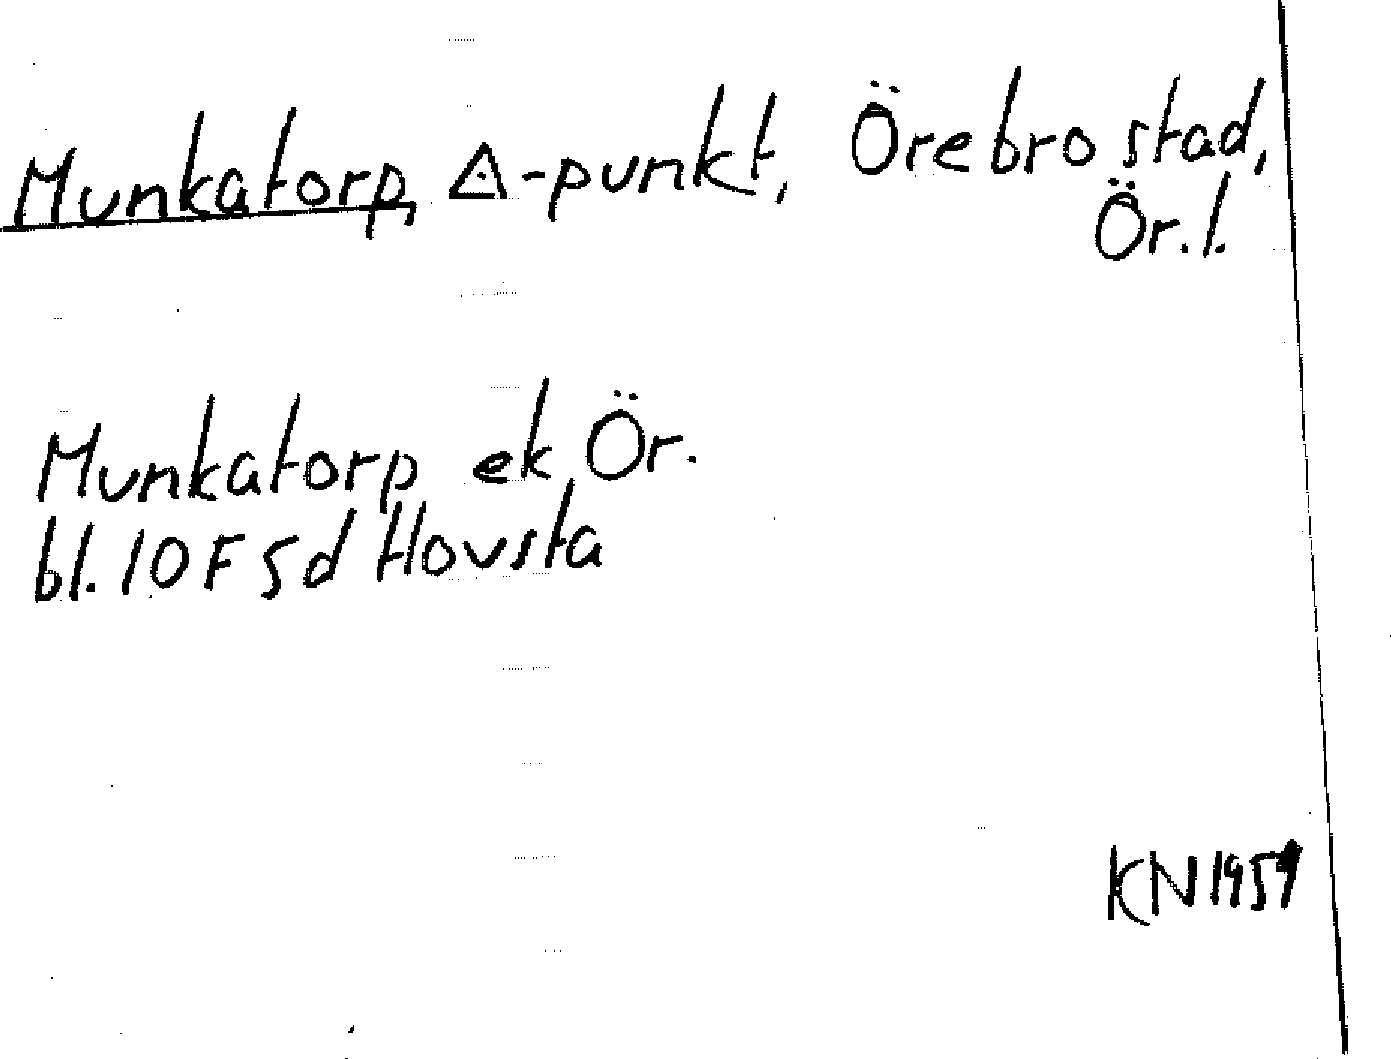 Munkatorp, △-punkt, Örebro stad,
Ör. l.
Munkatorp ek Ör.
bl. 10 F 5d Hovsta
KN 1959